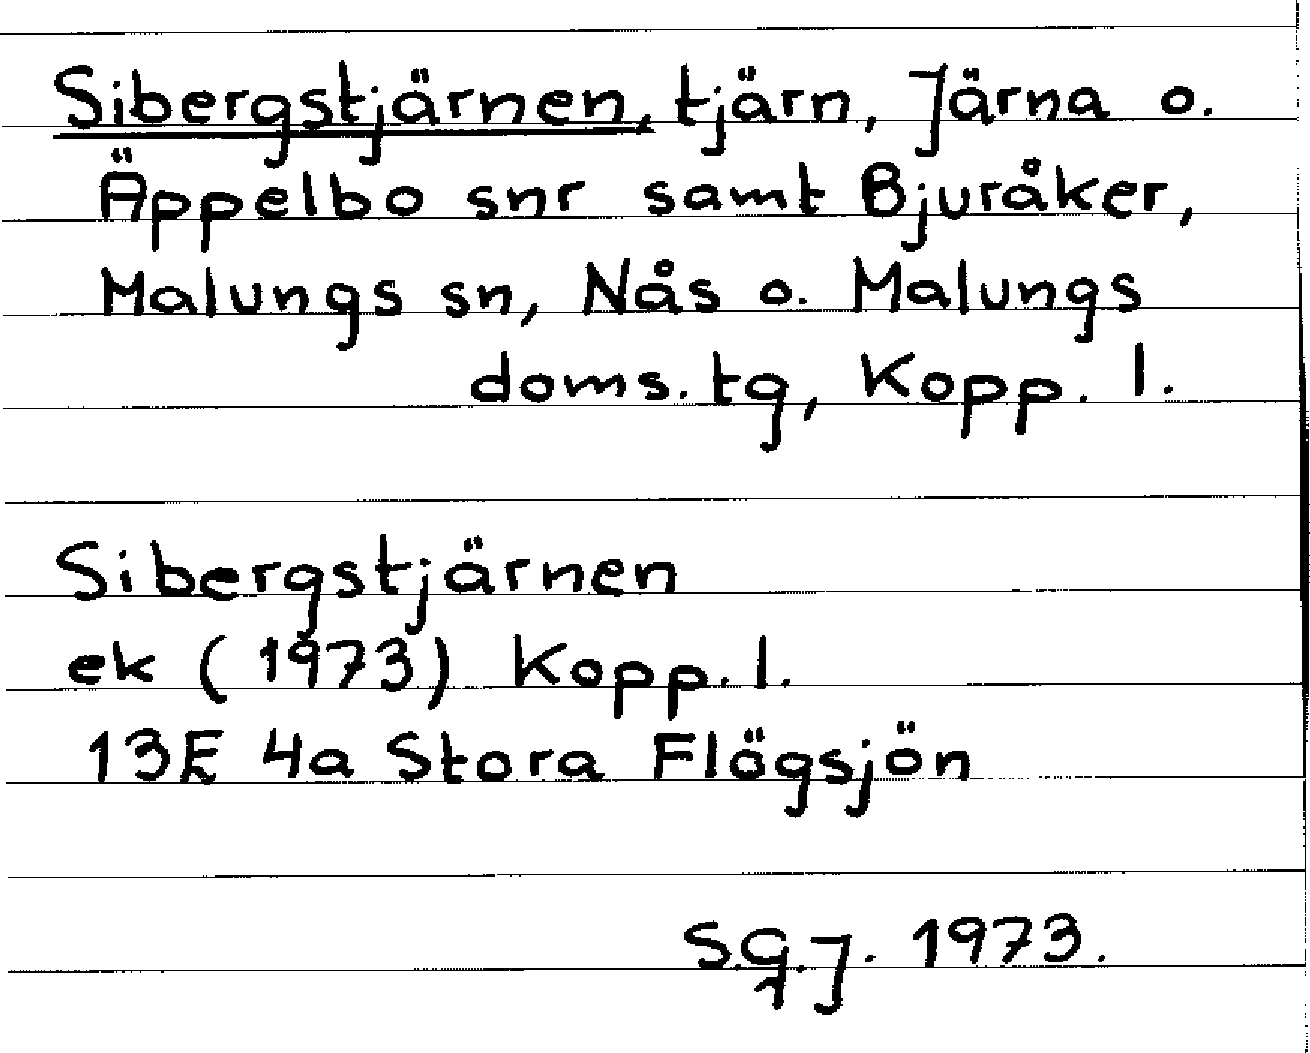 Sibergstjärnen, tjärn, Järna o.
Äppelbo snr samt Bjuråker,
Malungs sn, Nås o. Malungs
doms. tg, Kopp. l.
Sibergstjärnen
ek (1973) Kopp. l.
13E 4a Stora Flögsjön
S.G.J. 1973.